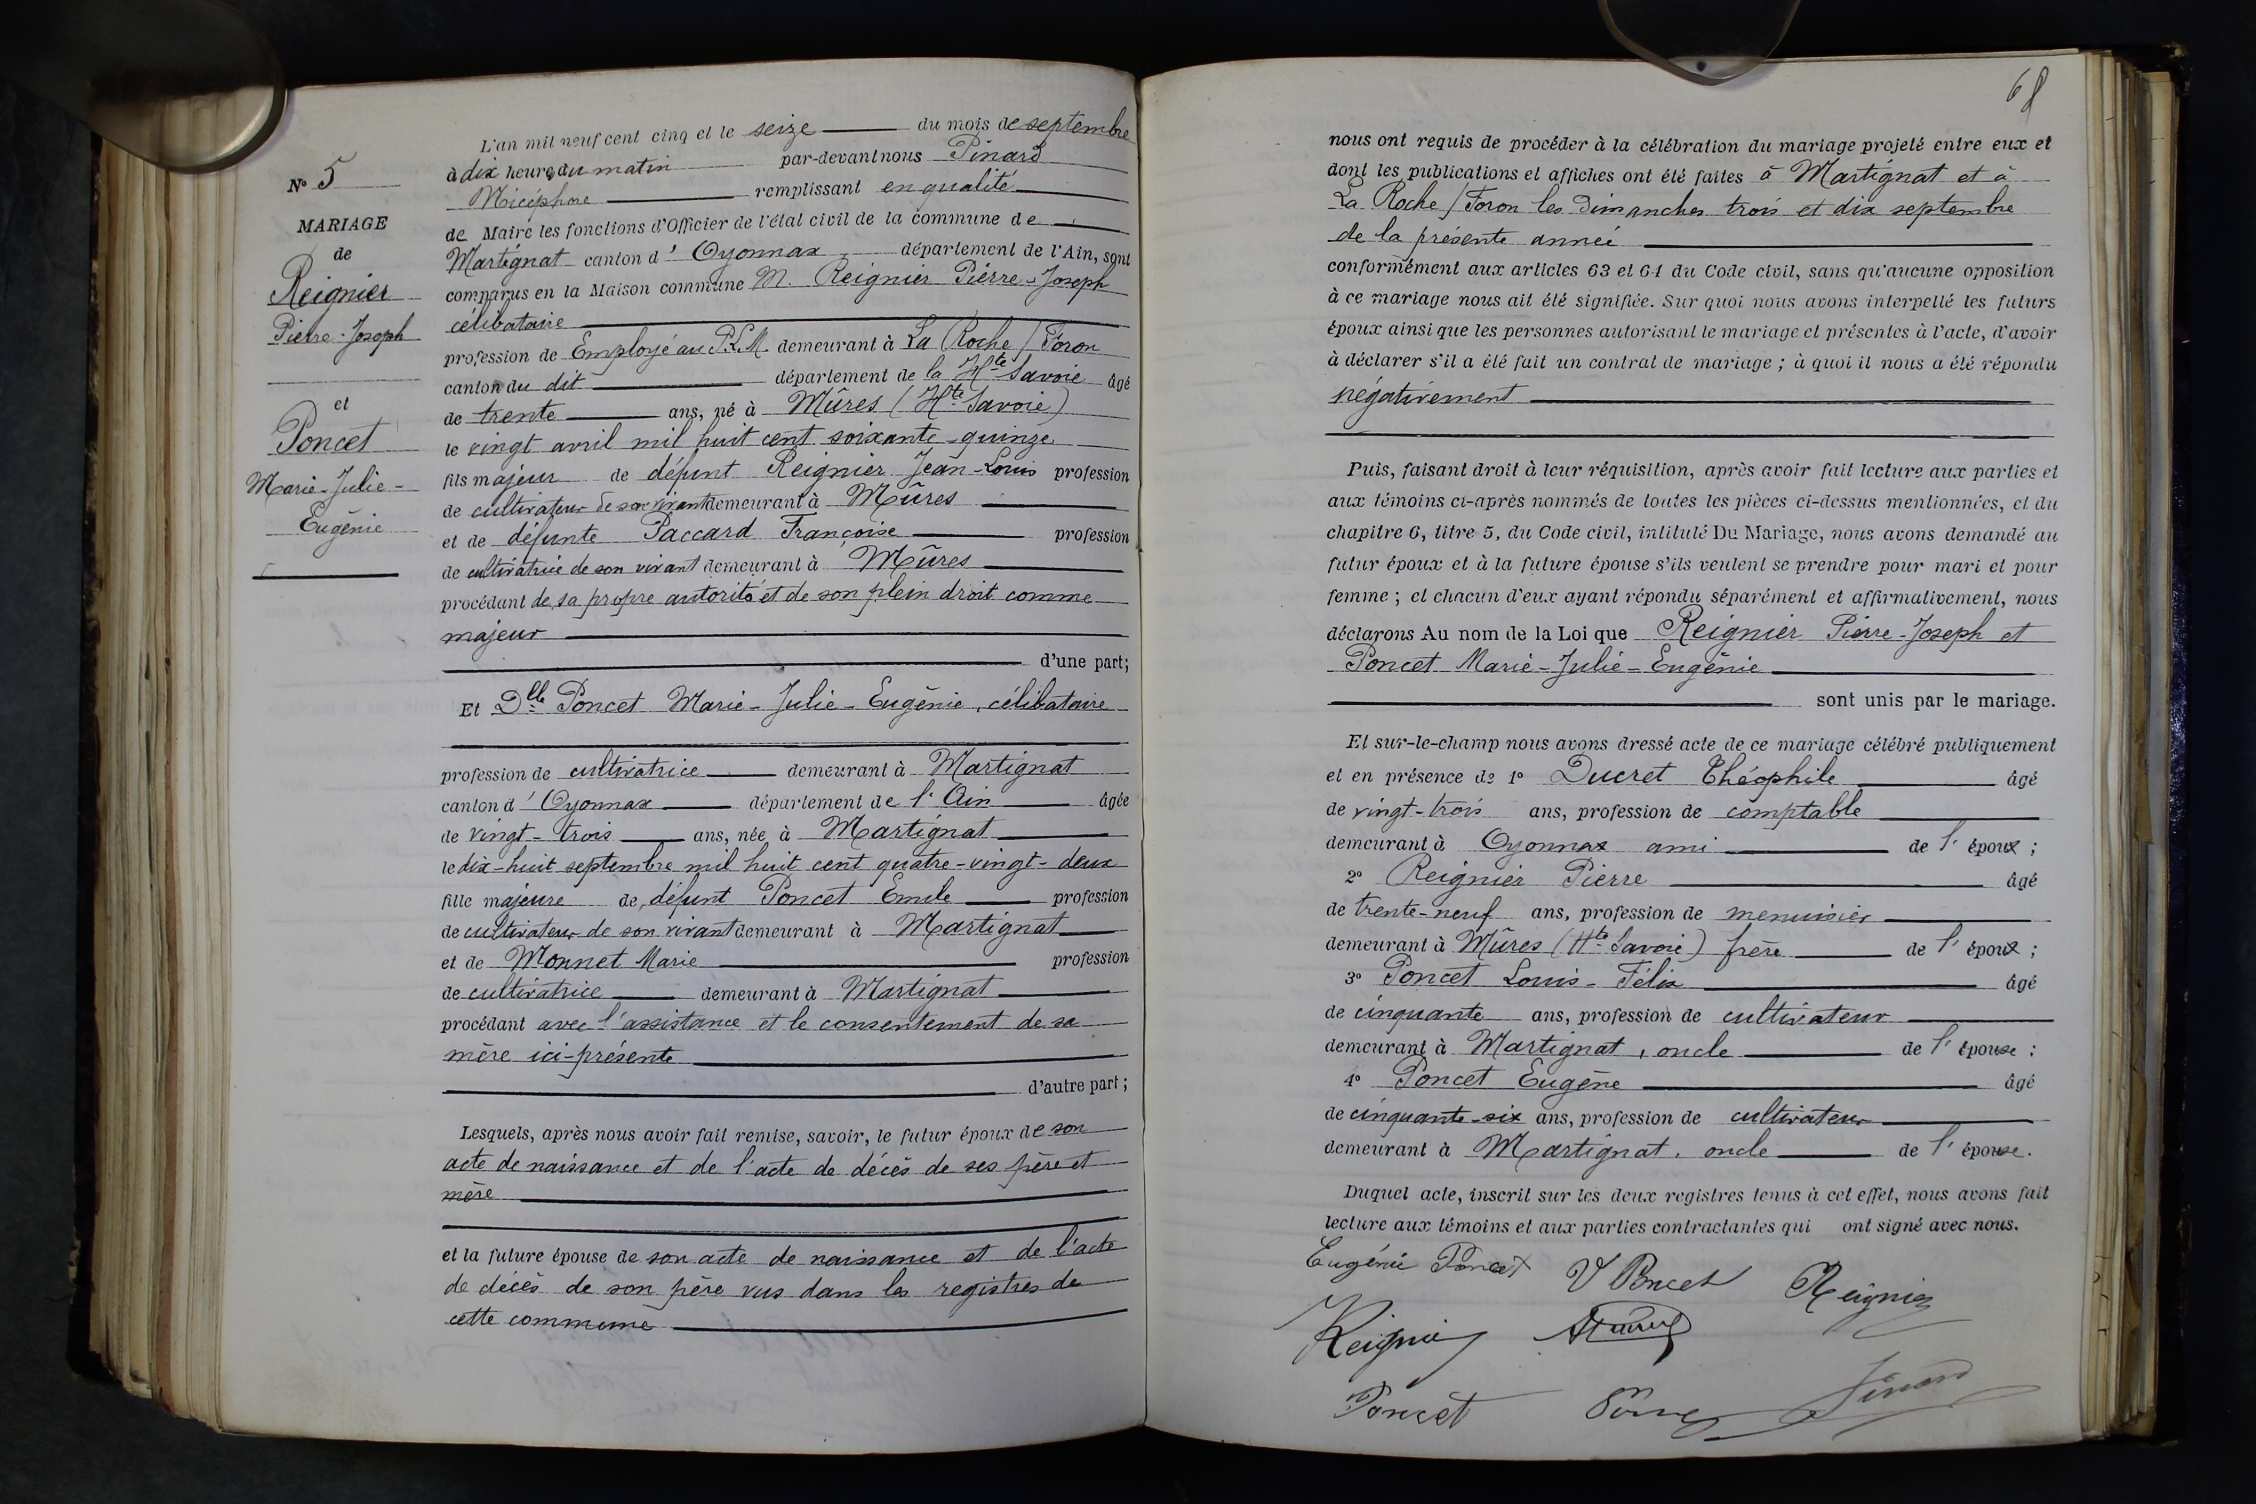 N° 5
MARIAGE
de
Reignier
Pierre-Joseph
et
Poncet
Marie-Julie-
Eugénie
L'an mil neuf cent cinq et le seize du mois de septembre
à dix heures du matin par-devant nous Pinard
Nicéphore remplissant en qualité
de Maire les fonctions d'Officier de l'état civil de la commune de
Martignat canton d'Oyonnax département de l'Ain, sont
comparus en la Maison commune M. Reignier Pierre-Joseph
célibataire
profession de Employé au P.L.M. demeurant à La Roche / Foron
canton du dit département de la Hte Savoie âgé
de trente ans, né à Mûres (Hte Savoie)
le vingt avril mil huit cent soixante-quinze
fils majeur de défunt Reignier Jean-Louis profession
de cultivateur de son vivant demeurant à Mûres
et de défunte Paccard Françoise profession
de cultivatrice de son vivant demeurant à Mûres
procédant de sa propre autorité et de son plein droit comme
majeur
d'une part;
Et Dlle Poncet Marie-Julie-Eugénie, célibataire
profession de cultivatrice demeurant à Martignat
canton d'Oyonnax département de l'Ain âgée
de vingt-trois ans, née à Martignat
le dix-huit septembre mil huit cent quatre-vingt-deux
fille majeure de défunt Poncet Emile profession
de cultivateur de son vivant demeurant à Martignat
et de Monnet Marie profession
de cultivatrice demeurant à Martignat
procédant avec l'assistance et le consentement de sa
mère ici-présente
d'autre part;
Lesquels, après nous avoir fait remise, savoir, le futur époux de son
acte de naissance et de l'acte de décès de ses père et
mère
et la future épouse de son acte de naissance et de l'acte
de décès de son père vus dans les registres de
cette commune
68
nous ont requis de procéder à la célébration du mariage projeté entre eux et
dont les publications et affiches ont été faites à Martignat et à
La Roche / Foron les dimanches trois et dix septembre
de la présente année
conformément aux articles 63 et 64 du Code civil, sans qu'aucune opposition
à ce mariage nous ait été signifiée. Sur quoi nous avons interpellé les futurs
époux ainsi que les personnes autorisant le mariage et présentes à l'acte, d'avoir
à déclarer s'il a été fait un contrat de mariage; à quoi il nous a été répondu
négativement
Puis, faisant droit à leur réquisition, après avoir fait lecture aux parties et
aux témoins ci-après nommés de toutes les pièces ci-dessus mentionnées, et du
chapitre 6, titre 5, du Code civil, intitulé Du Mariage, nous avons demandé au
futur époux et à la future épouse s'ils veulent se prendre pour mari et pour
femme; et chacun d'eux ayant répondu séparément et affirmativement, nous
déclarons Au nom de la Loi que Reignier Pierre-Joseph et
Poncet Marie-Julie-Eugénie
sont unis par le mariage.
Et sur-le-champ nous avons dressé acte de ce mariage célébré publiquement
et en présence de 1° Ducret Théophile âgé
de vingt-trois ans, profession de comptable
demeurant à Oyonnax ami de l'époux;
2° Reignier Pierre âgé
de trente-neuf ans, profession de menuisier
demeurant à Mûres (Hte Savoie) frère de l'époux;
3° Poncet Louis-Félix âgé
de cinquante ans, profession de cultivateur
demeurant à Martignat, oncle de l'épouse;
4° Poncet Eugène âgé
de cinquante-six ans, profession de cultivateur
demeurant à Martignat, oncle de l'épouse.
Duquel acte, inscrit sur les deux registres tenus à cet effet, nous avons fait
lecture aux témoins et aux parties contractantes qui ont signé avec nous.
Eugénie Poncet V Poncet Reignier
Reignier
Poncet Pinard